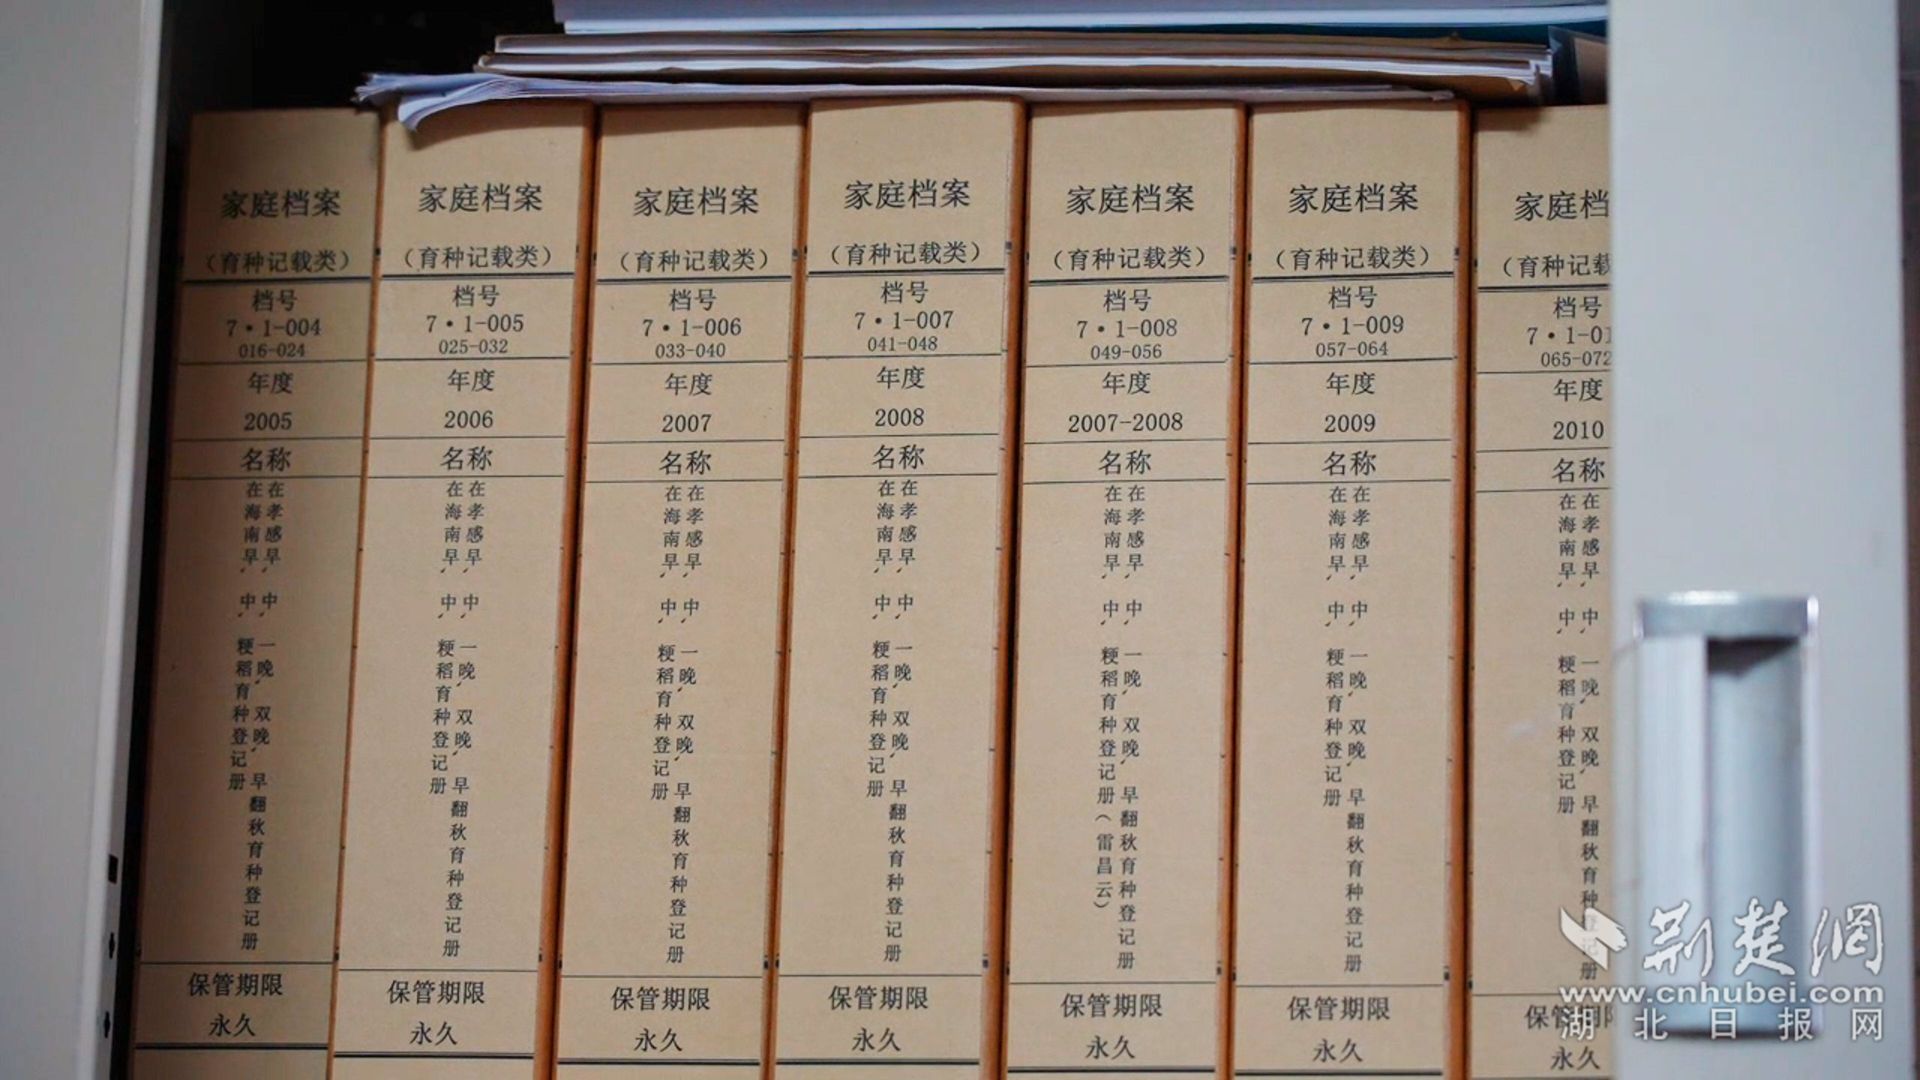 家庭档案
（育种记载类）
档号
7·1-004
016-024
年度
2005
名称
在孝感早、中、一晚、双晚、早翻秋育种登记册
在海南早、中、粳稻育种登记册
保管期限
永久
家庭档案
（育种记载类）
档号
7·1-005
025-032
年度
2006
名称
在孝感早、中、一晚、双晚、早翻秋育种登记册
在海南早、中、粳稻育种登记册
保管期限
永久
家庭档案
（育种记载类）
档号
7·1-006
033-040
年度
2007
名称
在孝感早、中、一晚、双晚、早翻秋育种登记册
在海南早、中、粳稻育种登记册
保管期限
永久
家庭档案
（育种记载类）
档号
7·1-007
041-048
年度
2008
名称
在孝感早、中、一晚、双晚、早翻秋育种登记册
在海南早、中、粳稻育种登记册
保管期限
永久
家庭档案
（育种记载类）
档号
7·1-008
049-056
年度
2007-2008
名称
在孝感早、中、一晚、双晚、早翻秋育种登记册
在海南早、中、粳稻育种登记册（雷昌云）
保管期限
永久
家庭档案
（育种记载类）
档号
7·1-009
057-064
年度
2009
名称
在孝感早、中、一晚、双晚、早翻秋育种登记册
在海南早、中、粳稻育种登记册
保管期限
永久
家庭档
（育种记载
档号
7·1-01
065-072
年度
2010
名称
在孝感早、中、一晚、双晚、早翻秋育种登记册
在海南早、中、粳稻育种登记册
保管期
永久
荆楚網
www.cnhubei.com
湖北日报网